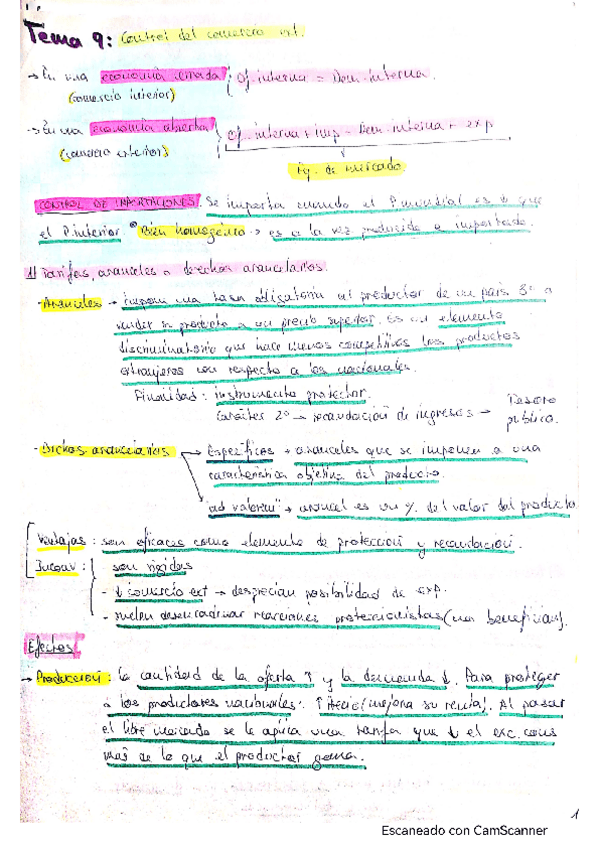 Tema 9: Control del comercio ext.
→ En una economía cerrada Of. interna = Dem. interna.
(comercio interior)
→ En una economía abierta Of. interna + imp = Dem. interna + exp
(comercio exterior)
Eq. de mercado.
CONTROL DE IMPORTACIONES. Se importa cuando el P mundial es ↓ que
el P interior. * Bien homogéneo → es a la vez producido e importado.
1) Tarifas, aranceles o derechos arancelarios.
- Aranceles → Imponen una tasa obligatoria al productor de un país 3º a
vender su producto a un precio superior. Es un elemento
discriminatorio que hace menos competitivos los productos
extranjeros con respecto a los nacionales.
Finalidad: instrumento protector.
Carácter 2º → recaudación de ingresos → Tesoro
público.
- Dchos arancelarios → Específicos → aranceles que se imponen a una
característica objetiva del producto.
"ad valorem" → arancel es un % del valor del producto
Ventajas: son eficaces como elemento de protección y recaudación.
Inconv: - son rígidas
- ↓ comercio ext → desprecian posibilidad de exp.
- suelen desencadenar reacciones proteccionistas
Efectos
→ Producción: la cantidad de la oferta ↑ y la demanda ↓. Para proteger
a los productores nacionales: ↑ precio (mejora su renta). Al pasar
el libre mercado se le aplica una tarifa que ↓ el exc. cons
más de lo que el productor gana.
1
Escaneado con CamScanner